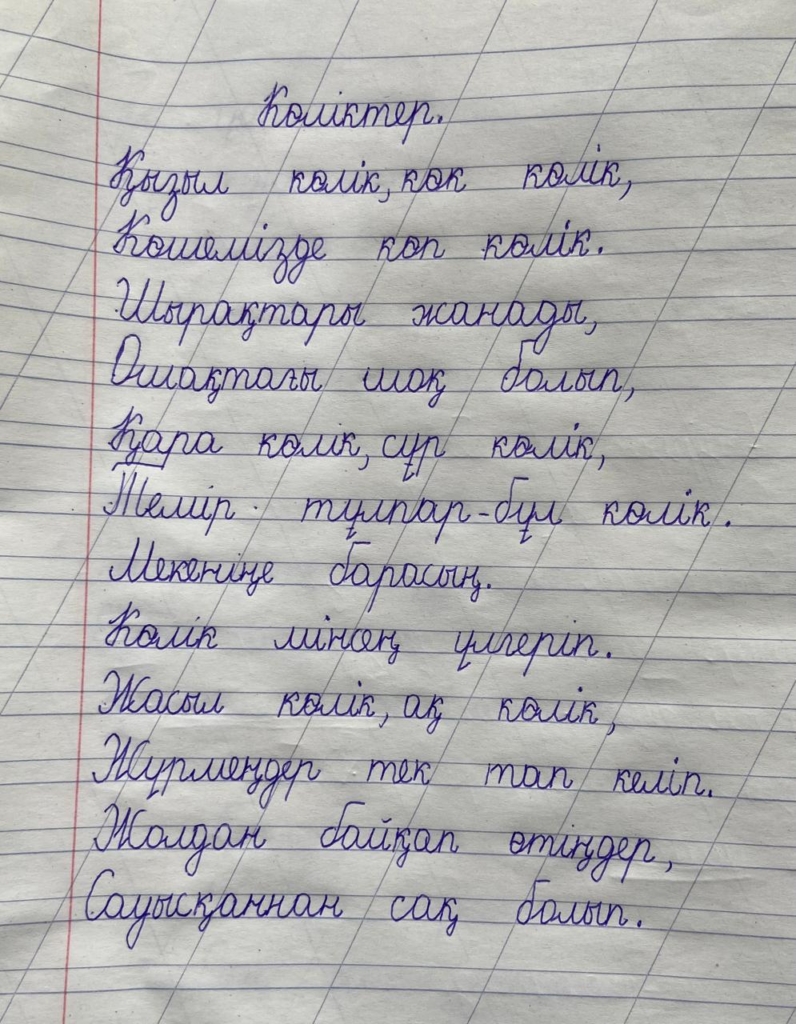 Көліктер.
Қызыл көлік, көк көлік,
Көшемізде көп көлік.
Шырақтары жанады,
Ошақтағы шоқ болып,
Қара көлік, сұр көлік,
Темір тұлпар-бұл көлік.
Мекеніңе барасың.
Көлік мінсең үлгеріп.
Жасыл көлік, ақ көлік,
Жүрмеңдер тек тап келіп.
Жолдан байқап өтіңдер,
Сауысқаннан сақ болып.